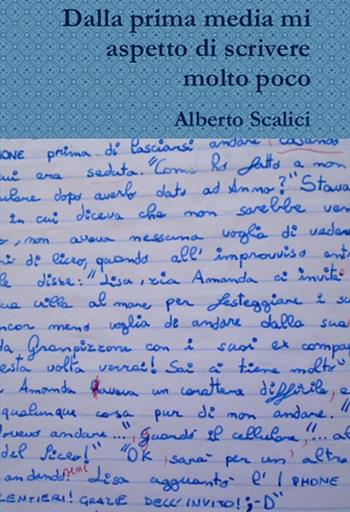 Dalla prima media mi
aspetto di scrivere
molto poco
Alberto Scalici
ONE prima di lasciarsi andare
cui era seduta. "Come ho fatto a non
ulare dopo averlo dato ad Anna?" Stava
in cui diceva che non sarebbe ven
, non aveva nessuna voglia di vedere
ni di liceo, quando all'improvviso ent
le disse: "Lisa, zia Amanda ci invita
villa al mare per festeggiare i su
ncor meno voglia di andare dalla sua
da Grampizzone con i suoi ex compa
esta volta verrai! Sai ci tiene molto"
Amanda aveva un carattere difficile, e
qualunque cosa pur di non andare. "
dovevo andare...", Quando il cellulare, "... al
del liceo!" "OK sarà per un'altra
andando Lisa agguantò l'I PHONE
LENTIERI! GRAZIE DELL'INVITO! ;-D"